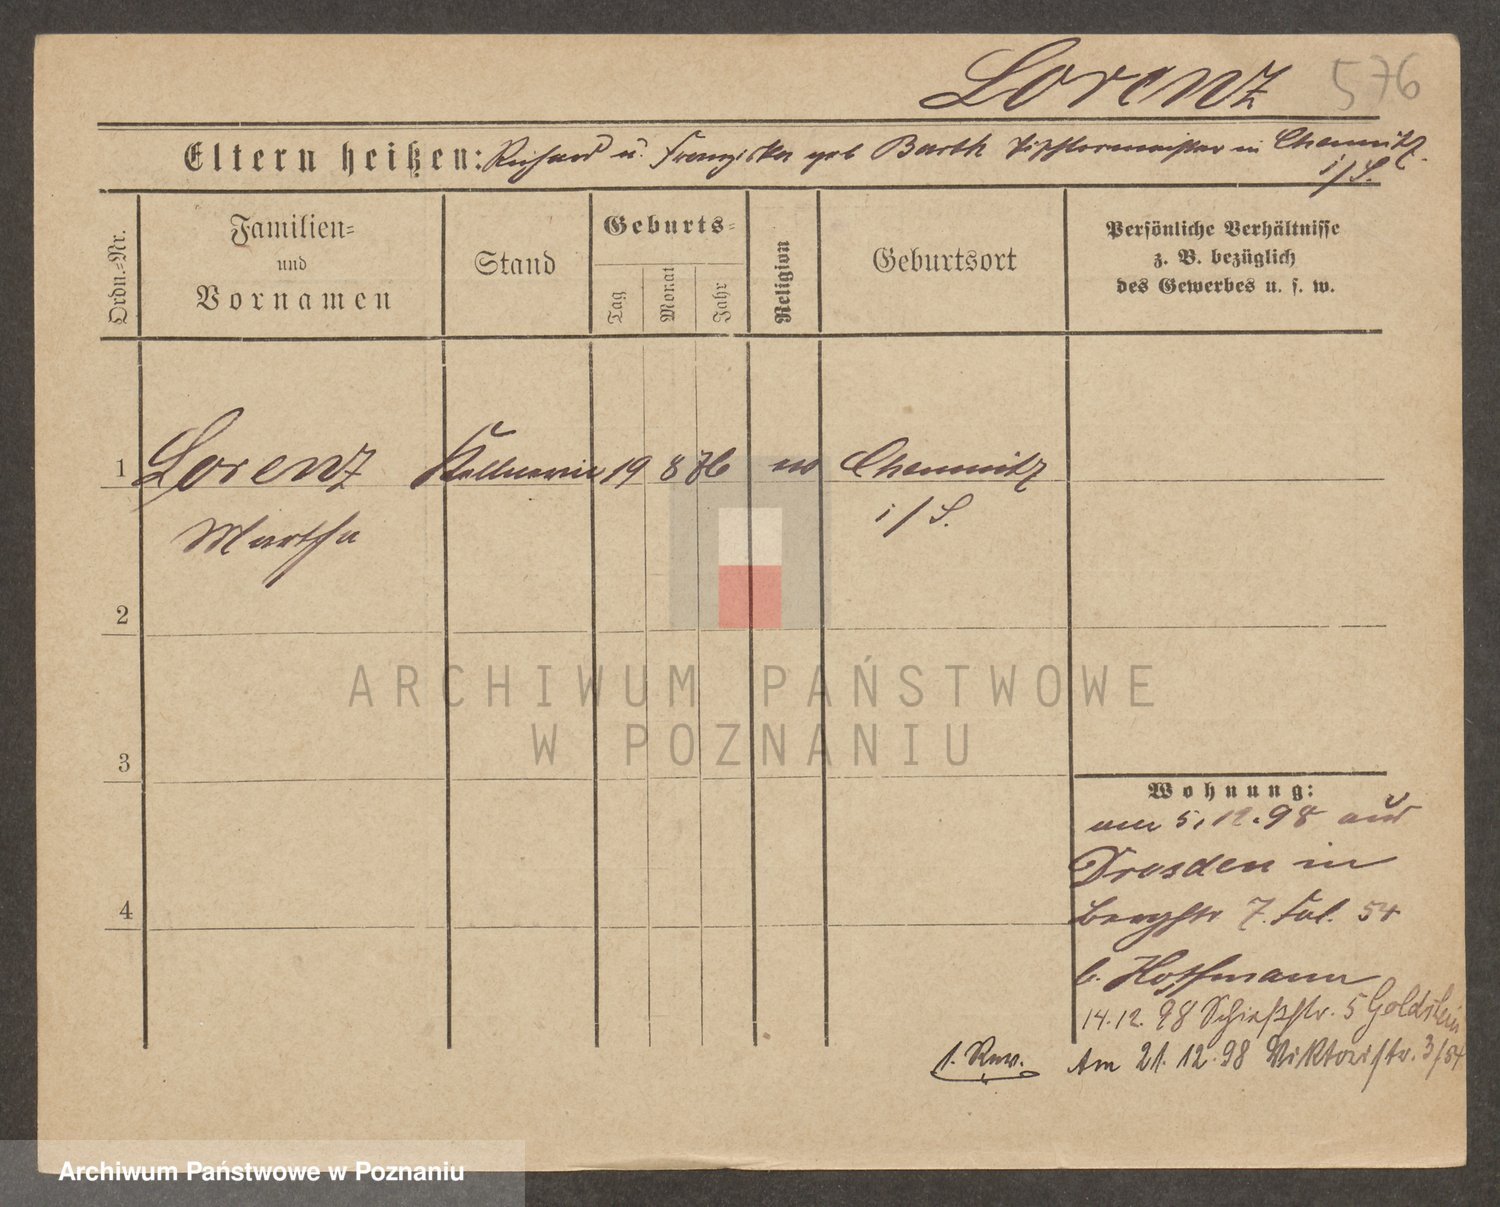 Lorenz 576
Eltern heißen: Richard u. Franziska geb Barth Tischlermeister in Chemnitz
i/S.
Ordn.-Nr.
Familien-
und
Vornamen
Stand
Geburts-
Tag
Monat
Jahr
Religion
Geburtsort
Persönliche Verhältnisse
z. B. bezüglich
des Gewerbes u. s. w.
1 Lorenz Kellnerin 19 8 76 ev Chemnitz
Martha i/S.
2
3
4
ARCHIWUM PAŃSTWOWE
W POZNANIU
Wohnung:
am 5.12.98 aus
Dresden in
Bergstr 7. 54
b. Hoffmann
14.12.98 Schießstr. 5 Goldstein
1. Rev. Am 21.12.98 Viktoriastr. 3/54
Archiwum Państwowe w Poznaniu